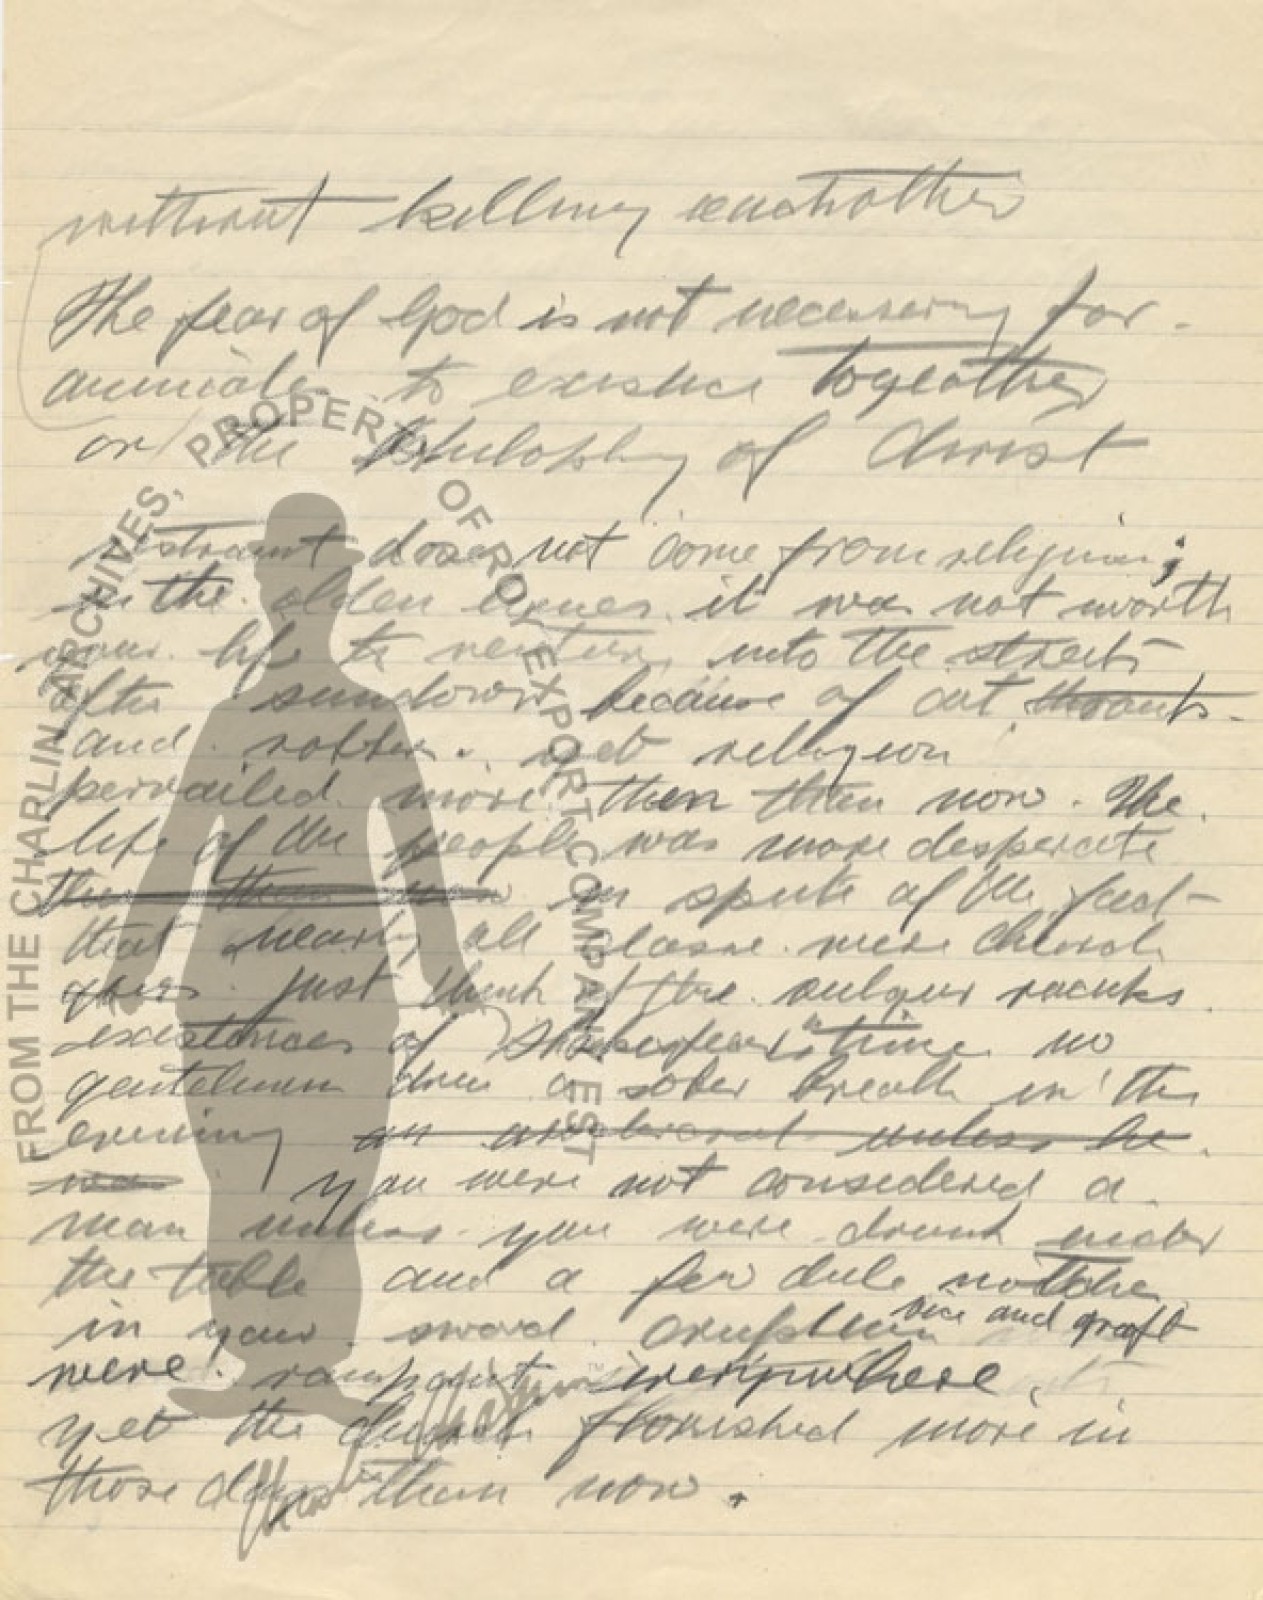 without killing eachother
The fear of God is not necessery for
animales to existence togeather
or the Philosphy of Christ
restraint dose not come from religion;
in the olden times it was not worth
your life to venture into the streets
after sundown because of cut throats
and robbers. yet religion
pervailed more then than now. The
life of the people was more desperate
then them now in spite of the fact
that nearly all classe were church
goers. just think of the vulgur
existences of Shakespear's time no
gentelmen drew a sober breath in the
evening unless he
was you were not considered a
man unless you were drunk under
the table and a few
in your sword. vice and graft
were rampant everywhere,
yet the church flourished more in
those days than now.
FROM THE CHARLIN ARCHIVES, PROPERTY OF ROY EXPORT COMPANY EST